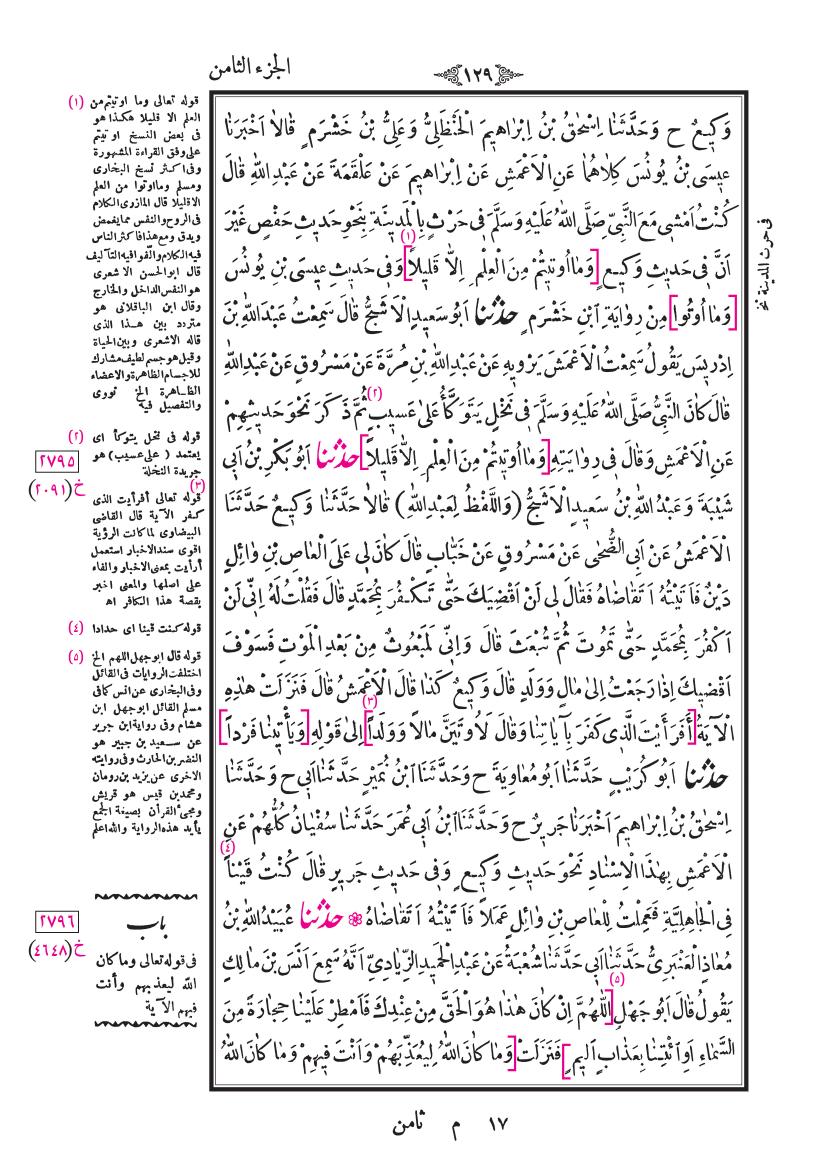 الجزء الثامن
١٢٩
وَكِيعٌ ح وَحَدَّثَنَا اِسْحٰقُ بْنُ اِبْرٰاهِيمَ الْحَنْظَلِىُّ وَعَلِىُّ بْنُ خَشْرَمٍ قٰالاٰ اَخْبَرَنٰا
عيسَى بْنُ يُونُسَ كِلاٰهُمٰا عَنِ الْاَعْمَشِ عَنْ اِبْرٰاهِيمَ عَنْ عَلْقَمَةَ عَنْ عَبْدِ اللّٰهِ قٰالَ
كُنْتُ اَمْشِى مَعَ النَّبِىِّ صَلَّى اللّٰهُ عَلَيْهِ وَسَلَّمَ فِى حَرْثٍ بِالْمَدِينَةِ بِنَحْوِ حَدِيثِ حَفْصٍ غَيْرَ
اَنَّ فِى حَدِيثِ وَكِيعٍ [وَمٰا اُوتِيتُمْ مِنَ الْعِلْمِ اِلاّٰ قَلِيلاً] (١) وَفِى حَدِيثِ عِيسَى بْنِ يُونُسَ
[وَمٰا اُوتُوا] مِنْ رِوٰايَةِ ابْنِ خَشْرَمٍ حدثنا اَبُو سَعِيدٍ الْاَشَجُّ قٰالَ سَمِعْتُ عَبْدَ اللّٰهِ بْنَ
اِدْرِيسَ يَقُولُ سَمِعْتُ الْاَعْمَشَ يَرْوِيهِ عَنْ عَبْدِ اللّٰهِ بْنِ مُرَّةَ عَنْ مَسْرُوقٍ عَنْ عَبْدِ اللّٰهِ
قٰالَ كٰانَ النَّبِىُّ صَلَّى اللّٰهُ عَلَيْهِ وَسَلَّمَ فِى نَخْلٍ يَتَوَكَّأُ عَلىٰ عَسِيبٍ (٢) ثُمَّ ذَكَرَ نَحْوَ حَدِيثِهِمْ
عَنِ الْاَعْمَشِ وَقٰالَ فِى رِوٰايَتِهِ [وَمٰا اُوتِيتُمْ مِنَ الْعِلْمِ اِلاّٰ قَلِيلاً] حدثنا اَبُو بَكْرِ بْنُ اَبِى
شَيْبَةَ وَعَبْدُ اللّٰهِ بْنُ سَعِيدٍ الْاَشَجُّ (وَاللَّفْظُ لِعَبْدِ اللّٰهِ) قٰالاٰ حَدَّثَنٰا وَكِيعٌ حَدَّثَنَا
الْاَعْمَشُ عَنْ اَبِى الضُّحٰى عَنْ مَسْرُوقٍ عَنْ خَبّٰابٍ قٰالَ كٰانَ لِى عَلَى الْعٰاصِ بْنِ وٰائِلٍ
دَيْنٌ فَاَتَيْتُهُ اَتَقٰاضٰاهُ فَقٰالَ لِى لَنْ اَقْضِيَكَ حَتّٰى تَكْفُرَ بِمُحَمَّدٍ قٰالَ فَقُلْتُ لَهُ اِنِّى لَنْ
اَكْفُرَ بِمُحَمَّدٍ حَتّٰى تَمُوتَ ثُمَّ تُبْعَثَ قٰالَ وَاِنِّى لَمَبْعُوثٌ مِنْ بَعْدِ الْمَوْتِ فَسَوْفَ
اَقْضِيكَ اِذٰا رَجَعْتُ اِلىٰ مٰالٍ وَوَلَدٍ قٰالَ وَكِيعٌ كَذٰا قٰالَ الْاَعْمَشُ قٰالَ فَنَزَلَتْ هٰذِهِ
الْآيَةُ [أَفَرَأَيْتَ الَّذِى كَفَرَ بِآيٰاتِنٰا وَقٰالَ لَاُوتَيَنَّ مٰالاً وَوَلَداً] (٣) اِلىٰ قَوْلِهِ [وَيَأْتِينٰا فَرْداً]
حدثنا اَبُو كُرَيْبٍ حَدَّثَنٰا اَبُو مُعٰاوِيَةَ ح وَحَدَّثَنَا ابْنُ نُمَيْرٍ حَدَّثَنٰا اَبِى ح وَحَدَّثَنٰا
اِسْحٰقُ بْنُ اِبْرٰاهِيمَ اَخْبَرَنٰا جَرِيرٌ ح وَحَدَّثَنَا ابْنُ اَبِى عُمَرَ حَدَّثَنٰا سُفْيٰانُ كُلُّهُمْ عَنِ
الْاَعْمَشِ بِهٰذَا الْاِسْنٰادِ نَحْوَ حَدِيثِ وَكِيعٍ وَفِى حَدِيثِ جَرِيرٍ قٰالَ كُنْتُ قَيْناً (٤)
فِى الْجٰاهِلِيَّةِ فَعَمِلْتُ لِلْعٰاصِ بْنِ وٰائِلٍ عَمَلاً فَاَتَيْتُهُ اَتَقٰاضٰاهُ ۞ حدثنا عُبَيْدُ اللّٰهِ بْنُ
مُعٰاذٍ الْعَنْبَرِىُّ حَدَّثَنٰا اَبِى حَدَّثَنٰا شُعْبَةُ عَنْ عَبْدِ الْحَمِيدِ الزِّيٰادِىِّ اَنَّهُ سَمِعَ اَنَسَ بْنَ مٰالِكٍ
يَقُولُ قٰالَ اَبُو جَهْلٍ [اَللّٰهُمَّ (٥) اِنْ كٰانَ هٰذٰا هُوَ الْحَقَّ مِنْ عِنْدِكَ فَاَمْطِرْ عَلَيْنٰا حِجٰارَةً مِنَ
السَّمٰاءِ اَوِ ائْتِنٰا بِعَذٰابٍ اَلِيمٍ] فَنَزَلَتْ [وَمٰا كٰانَ اللّٰهُ لِيُعَذِّبَهُمْ وَاَنْتَ فِيهِمْ وَمٰا كٰانَ اللّٰهُ
فى حرث المدينة نخ
(١) قوله تعالى وما اوتيتم من
العلم الا قليلا هكذا هو
فى بعض النسخ اوتيتم
على وفق القراءة المشهورة
وفى اكثر نسخ البخارى
ومسلم وما اوتوا من العلم
الا قليلا قال المازرى الكلام
فى الروح والنفس مما يغمض
ويدق ومع هذا فاكثر الناس
فيه الكلام والّفوا فيه التآليف
قال ابو الحسن الاشعرى
هو النفس الداخل والخارج
وقال ابن الباقلانى هو
متردد بين هذا الذى
قاله الاشعرى وبين الحياة
وقيل هو جسم لطيف مشارك
للاجسام الظاهرة والاعضاء
الظاهرة الخ نووى
والتفصيل فيه
(٢) قوله فى نخل يتوكأ اى
يعتمد (على عسيب) هو
جريدة النخلة
(٣) قوله تعالى أفرأيت الذى
كفر الآية قال القاضى
البيضاوى لما كانت الرؤية
اقوى سند الاخبار استعمل
أرأيت بمعنى الاخبار والفاء
على اصلها والمعنى اخبر
بقصة هذا الكافر اه
(٤) قوله كنت قينا اى حدادا
(٥) قوله قال ابو جهل اللهم الخ
اختلفت الروايات فى القائل
وفى البخارى عن انس كما فى
مسلم القائل ابو جهل ابن
هشام وفى رواية ابن جرير
عن سعيد بن جبير هو
النضر بن الحارث وفى روايته
الاخرى عن يزيد بن رومان
ومحمد بن قيس هو قريش
ومجئ القرأن بصيغة الجمع
يأيد هذه الرواية والله اعلم
باب
فى قوله تعالى وما كان
الله ليعذبهم وأنت
فيهم الآية
٢٧٩٥
خ (٢٠٩١)
٢٧٩٦
خ (٤٦٤٨)
١٧ م ثامن